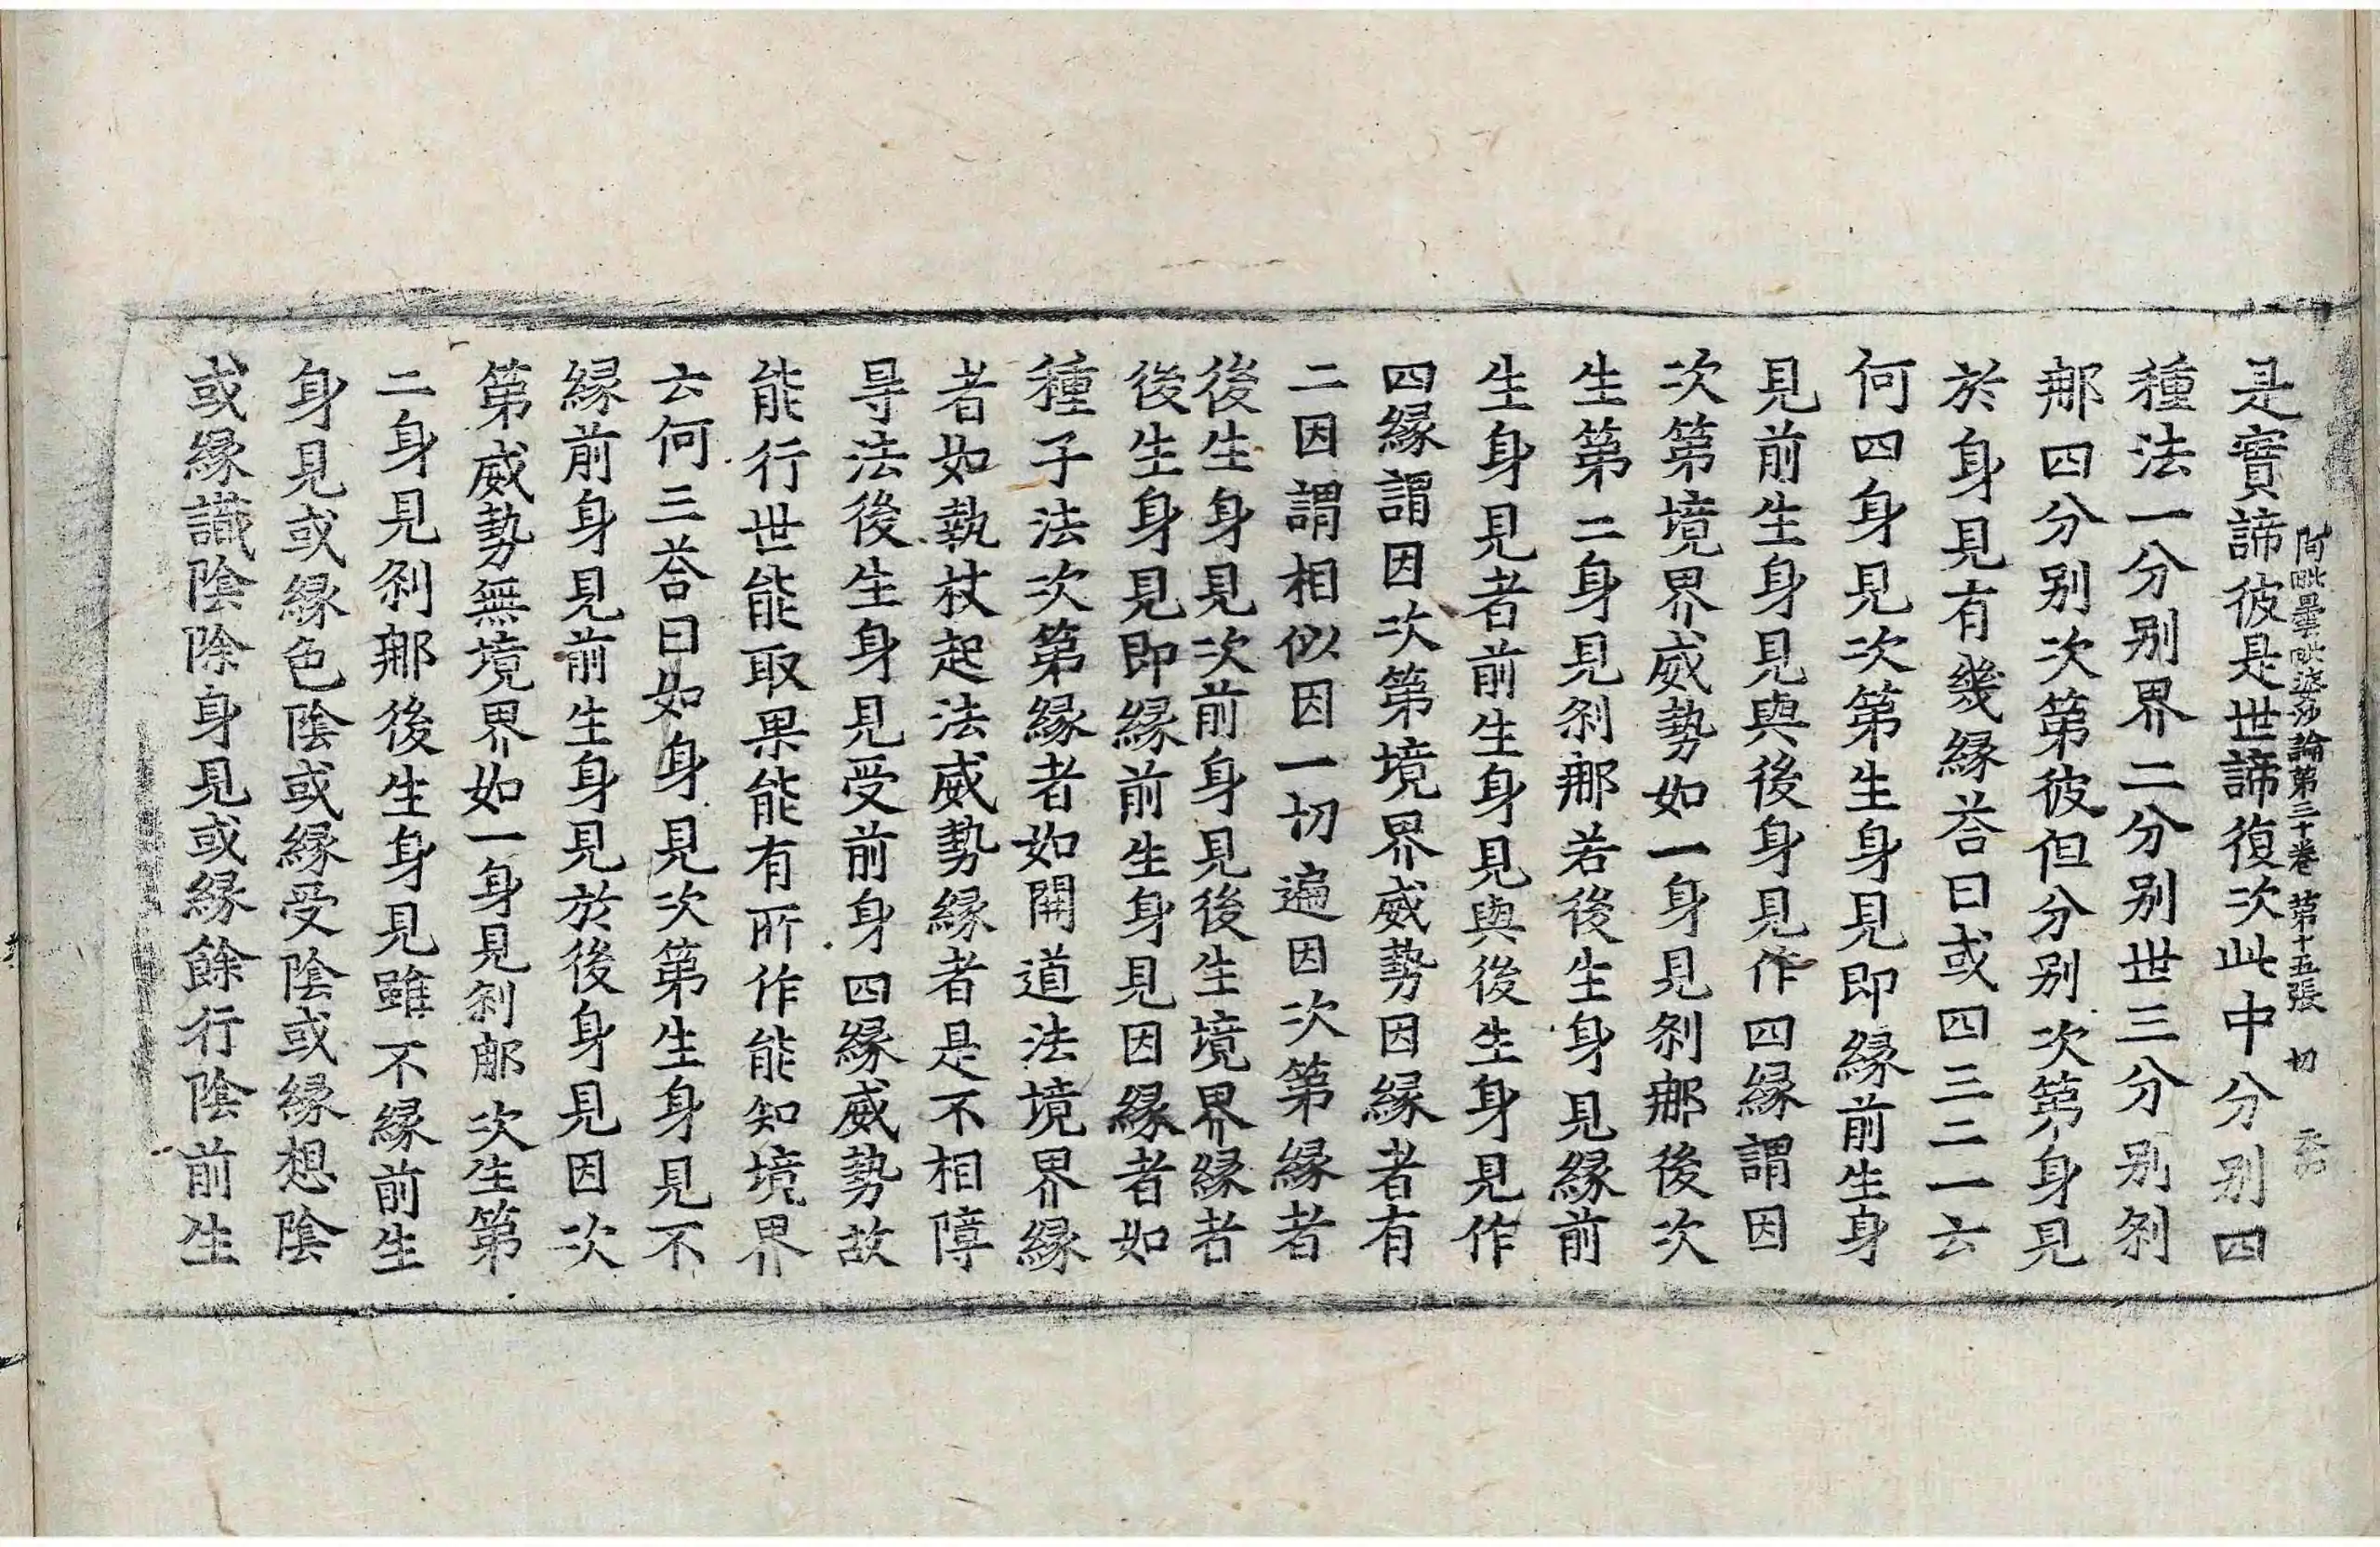 阿毗曇毗婆沙論第三十卷 第十五張 切
是實諦彼是世諦復次此中分別四
種法一分別界二分別世三分別刹
那四分別次第彼但分別次第身見
於身見有幾緣荅曰或四三二一云
何四身見次第生身見即緣前生身
見前生身見與後身見作四緣謂因
次第境界威勢如一身見刹那後次
生第二身見刹那若後生身見緣前
生身見者前生身見與後生身見作
四緣謂因次第境界威勢因緣者有
二因謂相似因一切遍因次第緣者
後生身見次前身見後生境界緣者
後生身見即緣前生身見因緣者如
種子法次第緣者如開道法境界緣
者如執杖起法威勢緣者是不相障
㝵法後生身見受前身四緣威勢故
能行世能取果能有所作能知境界
云何三荅曰如身見次第生身見不
緣前身見前生身見於後身見因次
第威勢無境界如一身見刹那次生第
二身見刹那後生身見雖不緣前生
身見或緣色陰或緣受陰或緣想陰
或緣識陰除身見或緣餘行陰前生